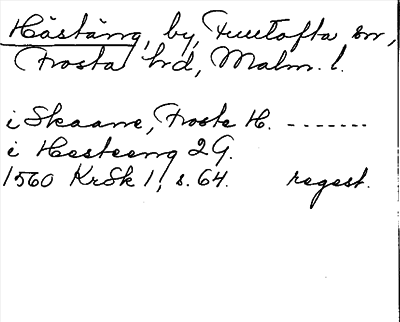 Hästäng, by, Fulltofta sn,
Frosta hrd, Malm. l.
i Skaane, Froste H. -------
i Hesteeng 2 G.
1560 KrSk 1, s. 64. regest.